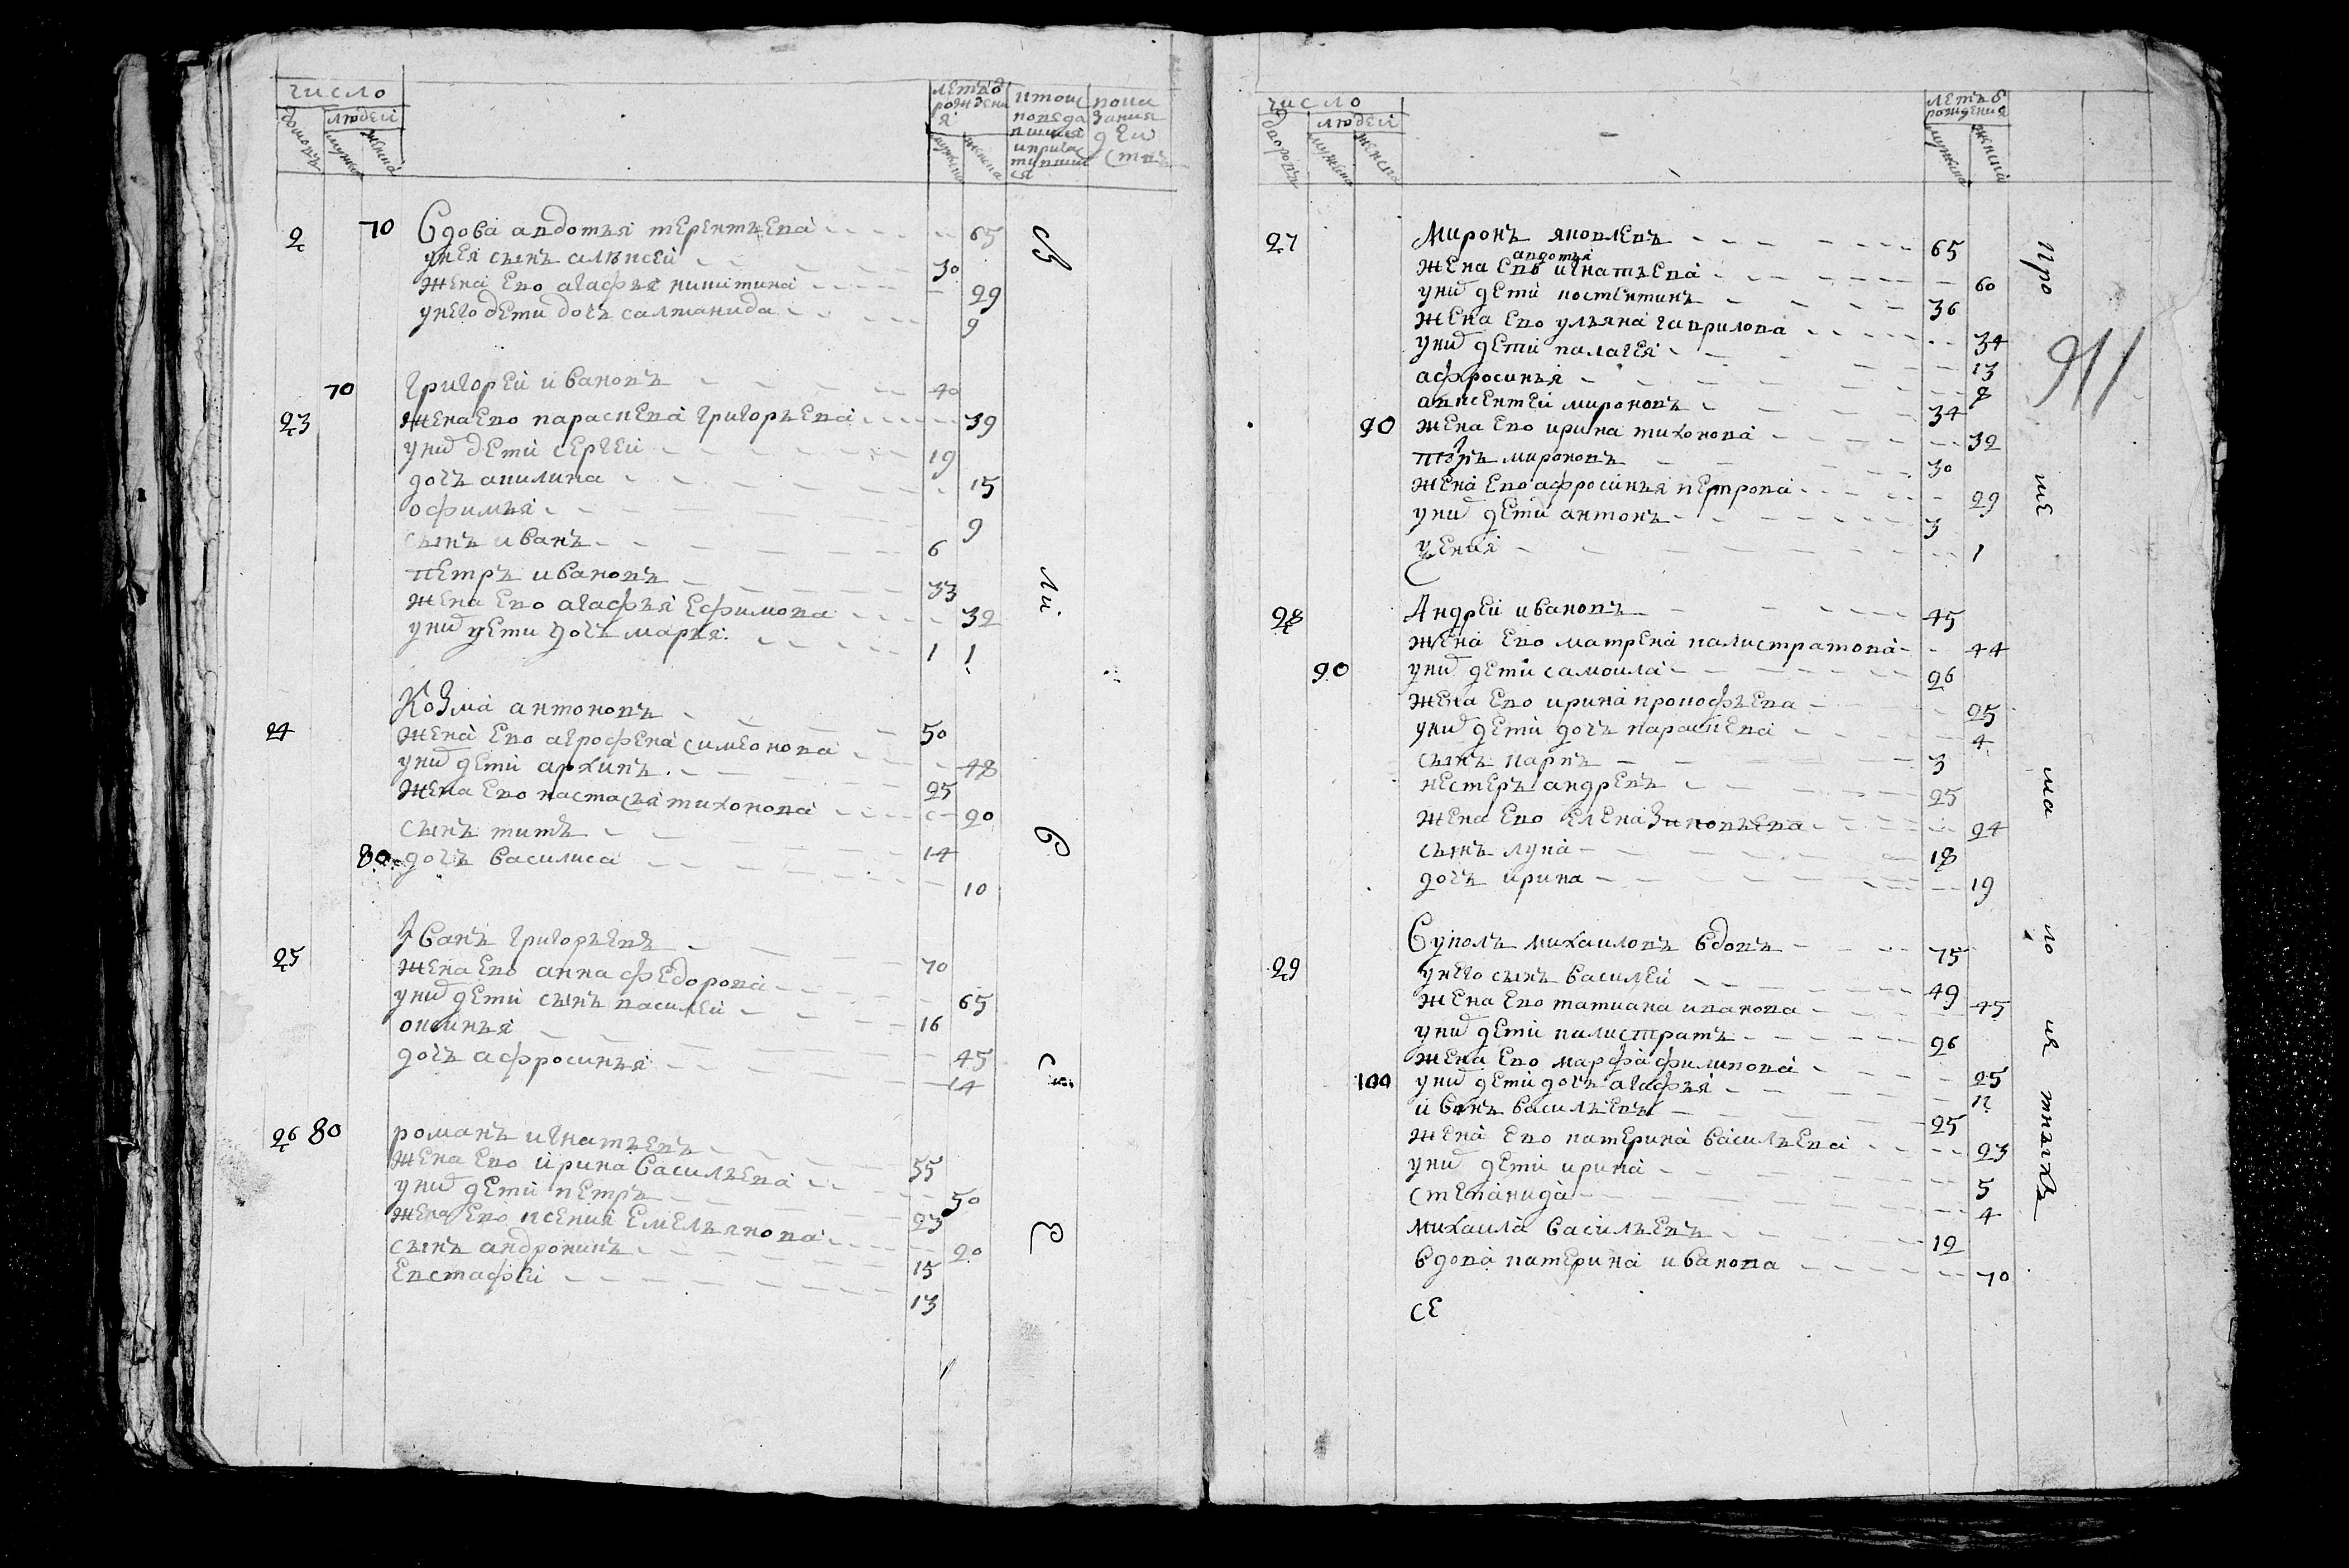 число
людей
домовъ
мужска
женска
летъ 8 рождения
мужска
женска
2 70 Вдова авдотья терентьева 65
унея сынъ алѣксей 30
жена ево агафья никитина 29
унего дети дочь салманида 9
70 Григорей ивановъ 40
23 жена ево параскева григорьева 39
уних дети сергей 19
дочь акилина 15
офимья 9
сынъ иванъ 6
петръ ивановъ 33
жена ево агафья ефимова 32
уних дети дочь марья 1 1
Козма антоновъ 50
24 жена ево агрофена симеонова 48
уних дети архипъ 25
жена ево настасья тихонова 20
сынъ титъ 14
80 дочь василиса 10
Иванъ григорьевъ 70
25 жена ево анна федорова 65
уних дети сынъ василей 16
оксинья 45
дочь афросинья 14
26 80 романъ игнатьевъ 55
жена ево ирина васильева 50
уних дети петръ 23
жена ево ксения емельянова 20
сынъ андроникъ 15
евстафей 13
св
ли
в
с
е
число
людей
дворовъ
мужска
женска
летъ 8 рождения
мужска
женска
27 Миронъ яковлевъ 65
жена ево авдотья игнатьева 60
уних дети костентинъ 36
жена ево ульяна гаврилова 34
уних дети палагея 13
афросинья 8
авксентей мироновъ 34
90 жена ево ирина тихонова 32
петръ мироновъ 30
жена ево афросинья петрова 29
уних дети антонъ 3
ксения 1
28 Андрей ивановъ 45
жена ево матрена калистратова 44
90 уних дети самоила 26
жена ево ирина прокофьева 25
уних дети дочь параскева 4
сынъ карпъ 3
нестеръ андревъ 25
жена ево елена зиновьева 24
сынъ лука 18
дочь ирина 19
Вуколъ михаиловъ вдовъ 75
29 унего сынъ василей 49
жена ево татиана иванова 45
уних дети калистратъ 26
жена ево марфа филипова 25
100 уних дети дочь агафья
иванъ васильевъ 25
жена ево катерина васильева 23
уних дети ирина 5
степанида 4
михаила васильевъ 12
вдова катерина иванова 70
се
про
ше
ма
ло